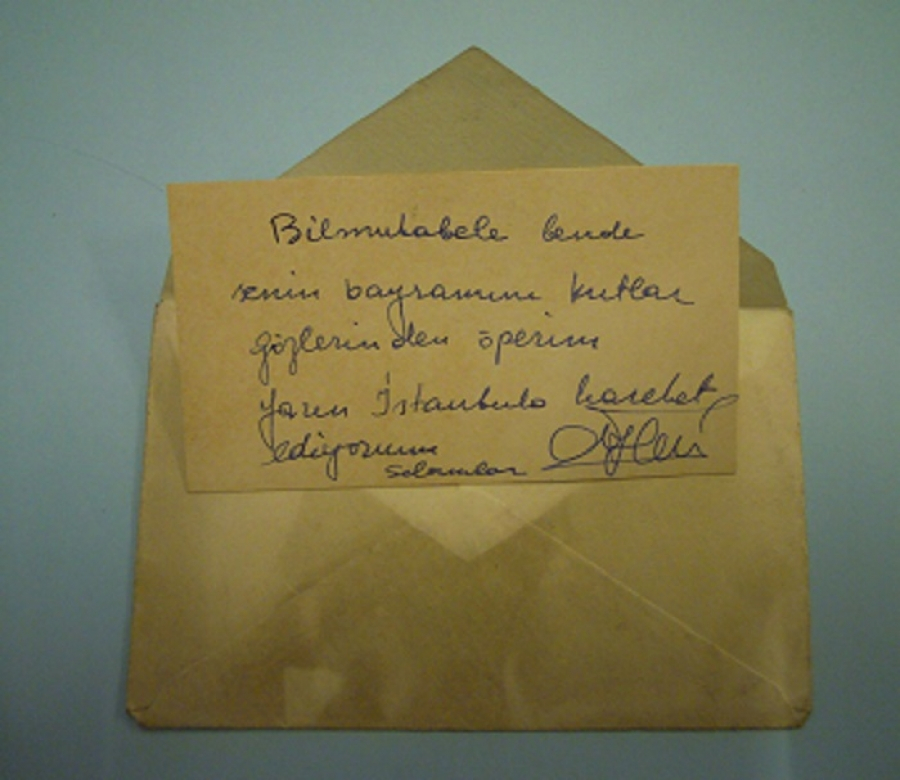 Bilmukabele bende
senin bayramını kutlar
gözlerinden öperim
yarın İstanbula hareket
ediyorum
selamlar